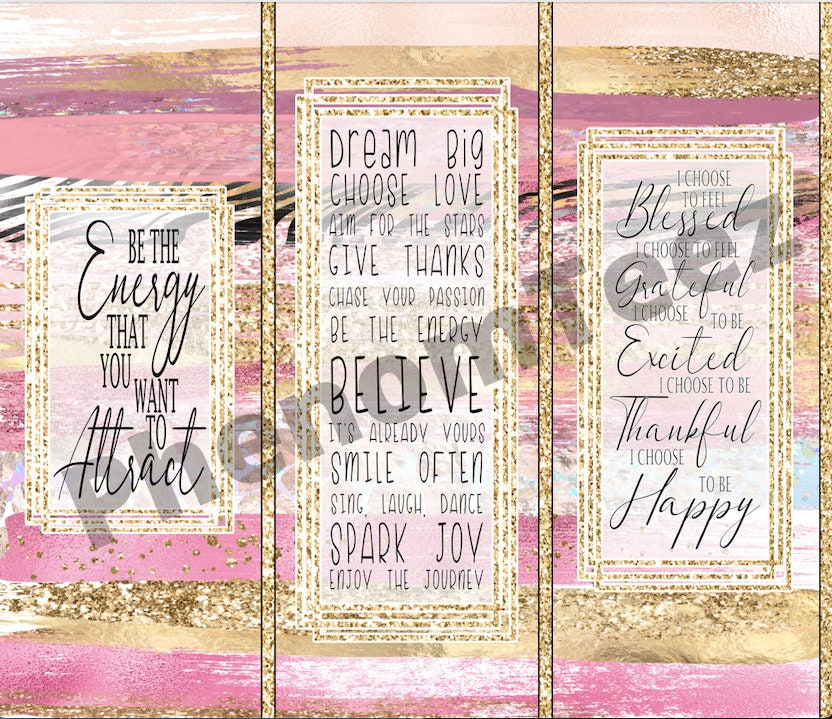 BE THE
Energy
THAT
YOU
WANT
TO
Attract
Dream Big
CHOOSE LOVE
AIM FOR THE STARS
GIVE THANKS
CHASE YOUR PASSION
BE THE ENERGY
BELIEVE
IT'S ALREADY YOURS
SMILE OFTEN
SING, LAUGH, DANCE
SPARK JOY
ENJOY THE JOURNEY
I CHOOSE
TO FEEL
Blessed
I CHOOSE TO FEEL
Grateful
I CHOOSE TO BE
Excited
I CHOOSE TO BE
Thankful
I CHOOSE TO BE
Happy
PhenomTeeZ